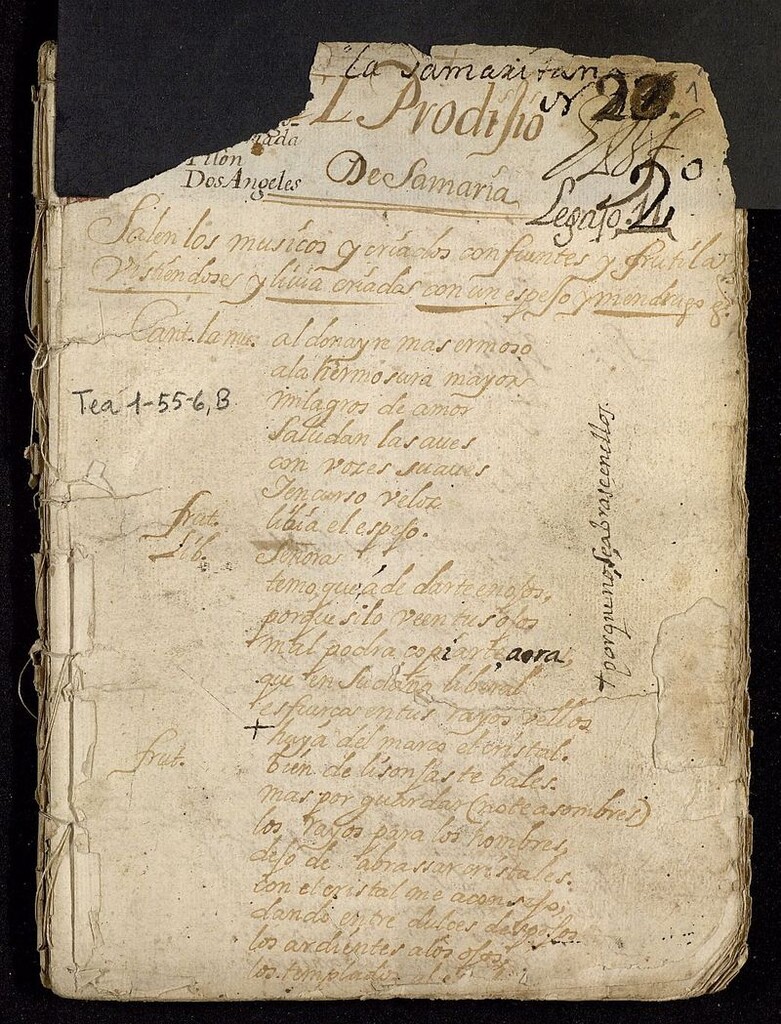 la samaritana
L Prodisio
Nº 20.
1
De Samaria
nada
Pilon
Dos Angeles
Legajo, 11
Salen los musicos y criados con fuentes y frutila
Vistiendoses y libia criadas con un espejo y mendrugo
Cant. la mus. al donayre mas ermoso
a la hermosura mayor
milagros de amor
saludan las aves
con vozes suaves
Tea 1-55-6, B
frut. libia el espejo.
Lib. Señora
temo, que a de darte enojos,
porque si lo veen tus ojos
mal podra copiarte, aora
que en su liberal
esparces en tus rayos vellos
+ huya del marco el cristal.
+ porque no se abrase en ellos.
frut. bien de lisonjas te bales.
mas por guardar (no te asombres)
los rayos para los hombres,
dejo de abrassar cristales.
con el cristal me aconsejo,
dando entre dulces
los ardientes a los ojos
los templados al